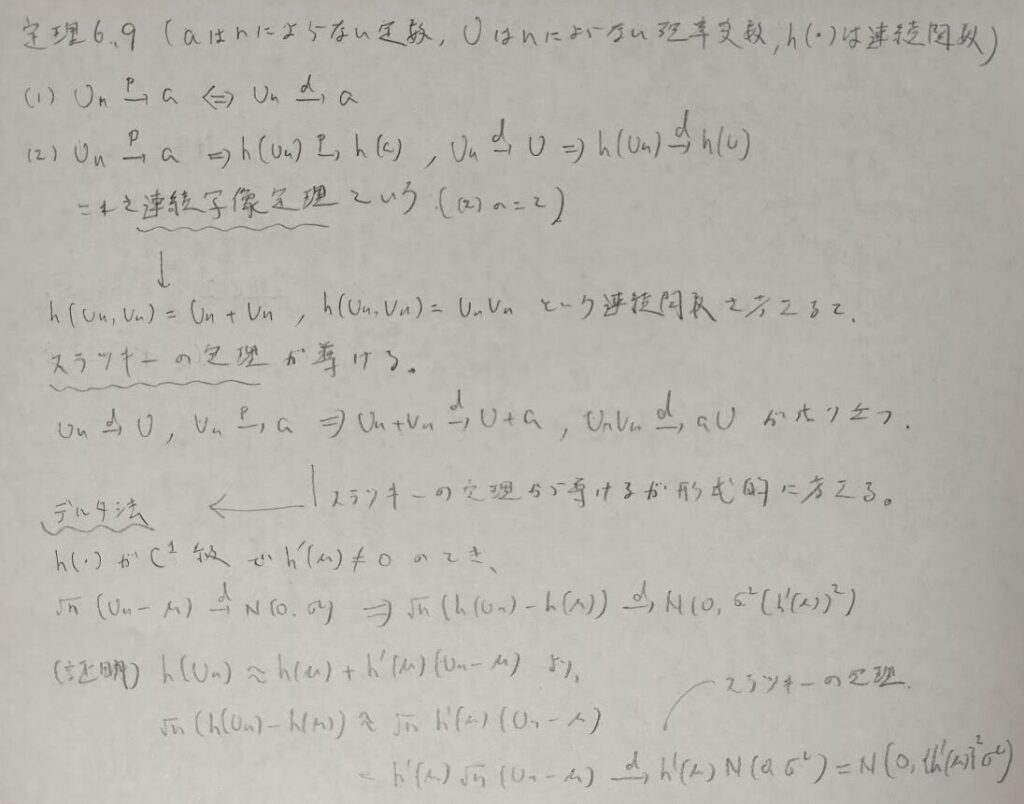 定理6.9 (aはnによらない定数, Uはnによらない確率変数, h(・)は連続関数)
(1) Un →p a ⇔ Un →d a
(2) Un →p a ⇒ h(Un) →p h(a) , Un →d U ⇒ h(Un) →d h(U)
これを連続写像定理という ((2)のこと)
↓
h(Un, Vn) = Un + Vn , h(Un, Vn) = UnVn という連続関数を考えると、
スラツキーの定理が導ける。
Un →d U , Vn →p a ⇒ Un+Vn →d U+a , UnVn →d aU が成り立つ.
スラツキーの定理から導けるが形式的に考える。
デルタ法 ←
h(・)がC¹級でh'(μ)≠0のとき、
√n (Un − μ) →d N(0, σ²) ⇒ √n (h(Un) − h(μ)) →d N(0, σ²(h'(μ))²)
(証明) h(Un) ≈ h(μ) + h'(μ)(Un − μ) より,
スラツキーの定理.
√n (h(Un) − h(μ)) ≈ √n h'(μ)(Un − μ)
= h'(μ) √n (Un − μ) →d h'(μ) N(0, σ²) = N(0, {h'(μ)}²σ²)